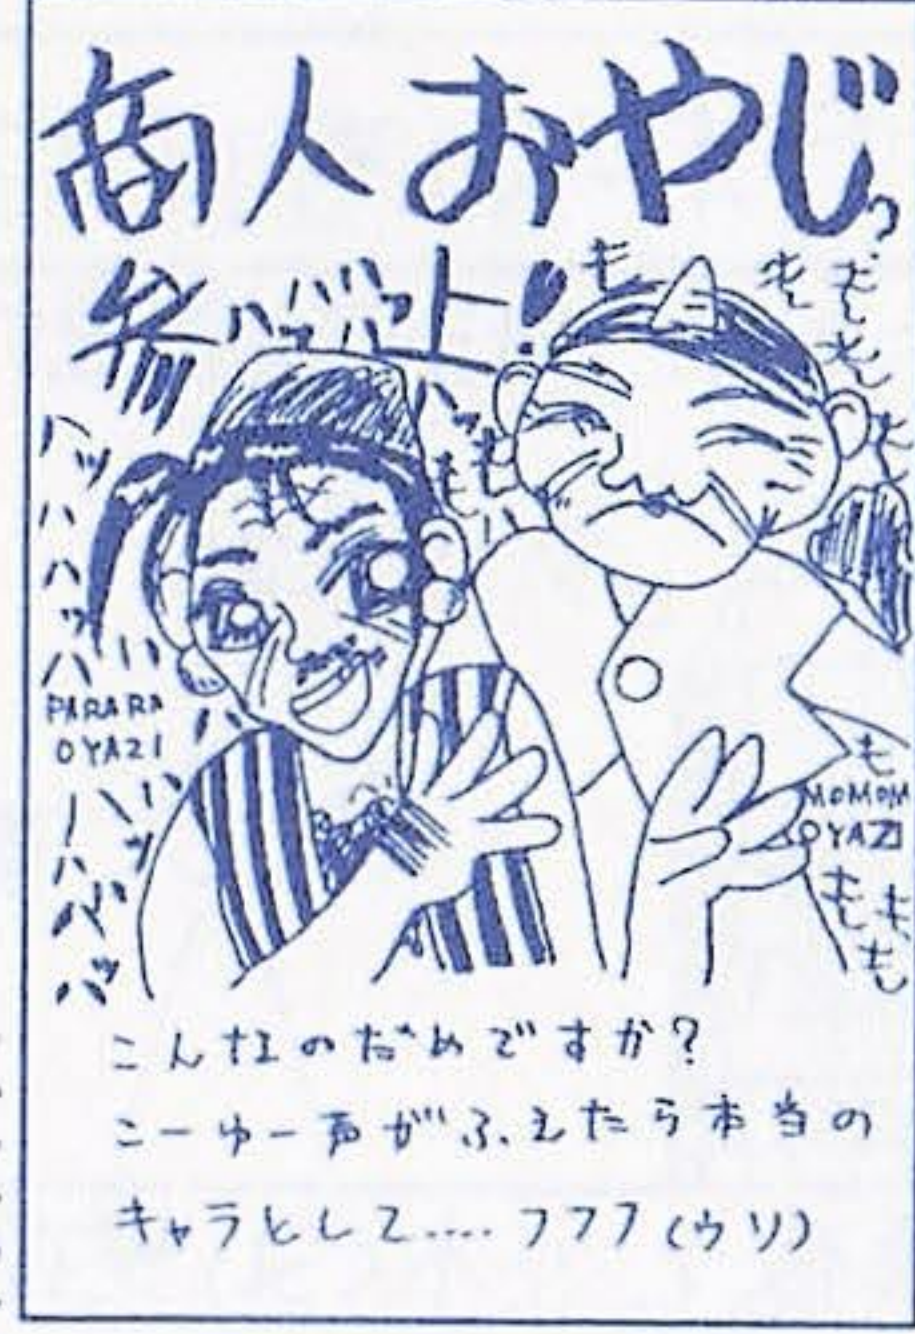 商人おやじっ
参上!
ハッハッハッ
も
も
も
も
も
ハッ
も
も
ハッ
ハ
ハッ
ハハ
PARARA
OYAZI
ハッ
ハ
バ
バッ
も
も
MOMOM
OYAZI
も
も
も
こんなのだめですか?
こーゆー声がふえたら本当の
キャラとして‥‥フフフ(ウソ)